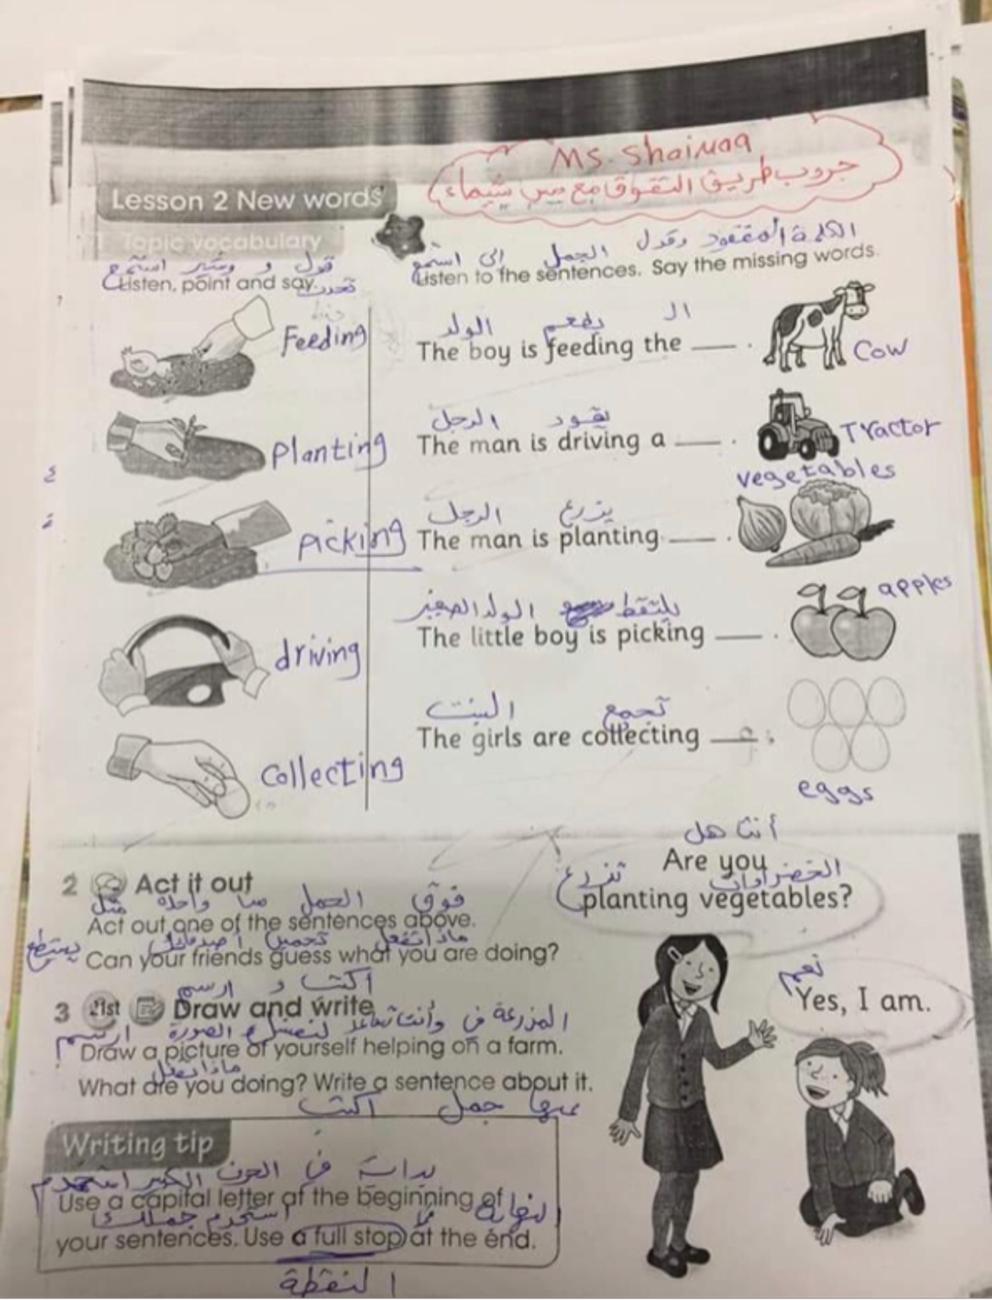 Ms. Shaimaa
جروب طريق التفوق مع مس شيماء
Lesson 2 New words
1 Topic vocabulary
قول و وشير استمع
Listen, point and say.
تحدث
Feeding
Planting
picking
driving
Collecting
الكلمة المفقود وقول الجمل إلى استمع
Listen to the sentences. Say the missing words.
الـ يطعم الولد
The boy is feeding the ___ .
Cow
يقود الرجل
The man is driving a ___ .
Tractor
vegetables
يزرع الرجل
The man is planting ___ .
apples
يلتقط الولد الصغير
The little boy is picking ___ .
تجمع البنت
The girls are collecting ___ .
eggs
2 Act it out
فوق الجمل من واحدة مثل
Act out one of the sentences above.
ماذا تفعل تخمين أصدقائك يستطيع
Can your friends guess what you are doing?
اكتب و ارسم
3 21st Draw and write
المزرعة في وأنت تساعد لنفسك الصورة ارسم
Draw a picture of yourself helping on a farm.
ماذا تفعل
What are you doing? Write a sentence about it.
عنها جمل اكتب
Writing tip
بداية في الحرف الكبير استخدم
Use a capital letter at the beginning of
النهاية استخدم جملتك
your sentences. Use a full stop at the end.
النقطة
أنت هل
Are you
الخضراوات تزرع
planting vegetables?
نعم
Yes, I am.